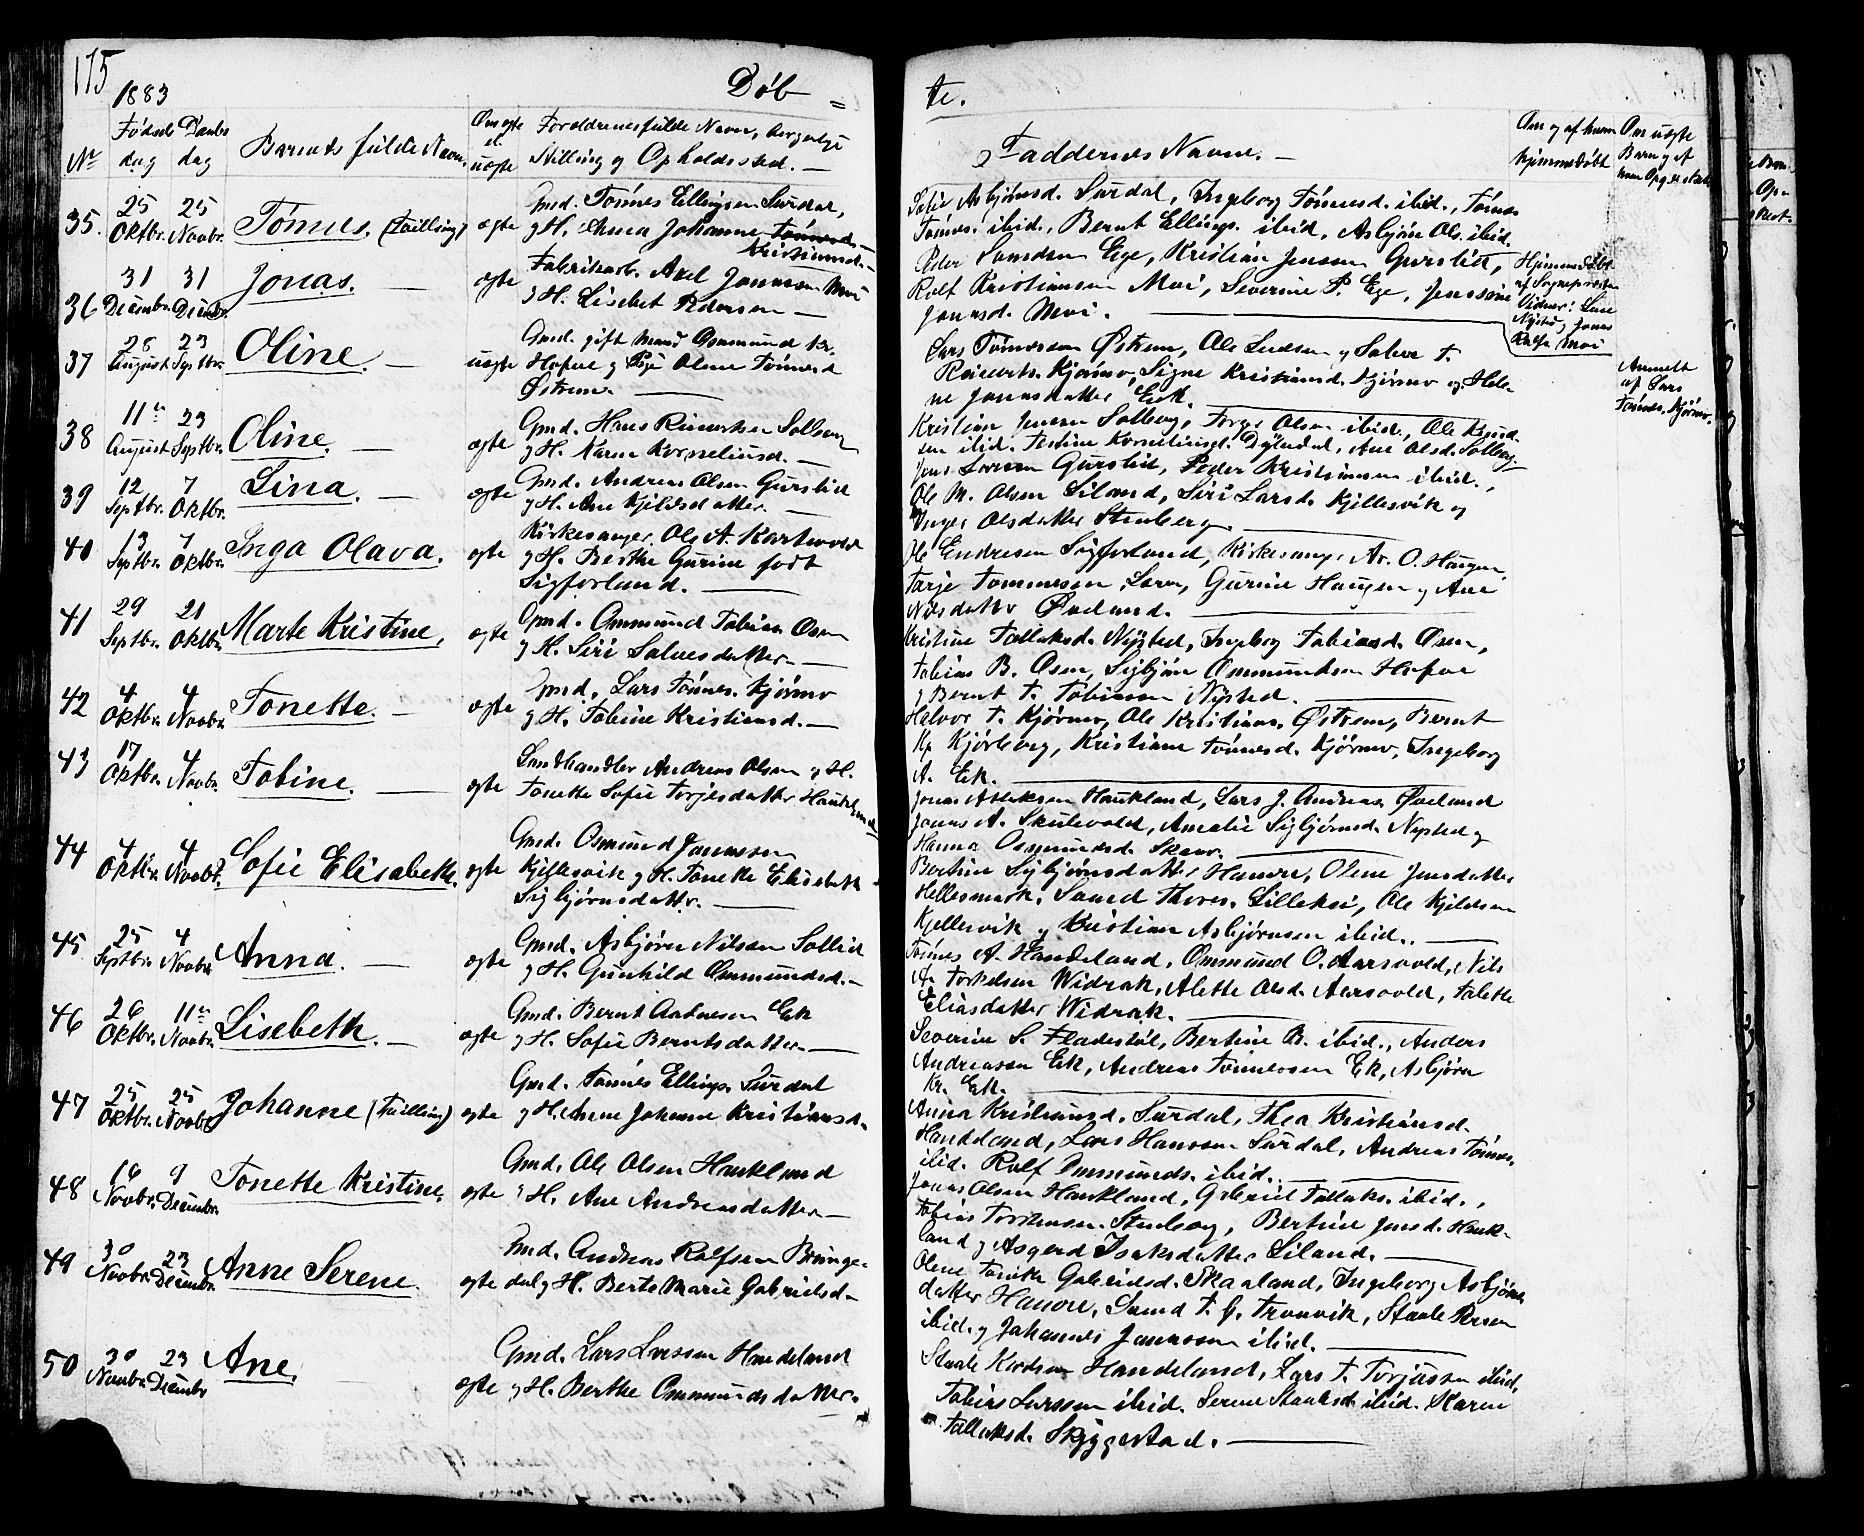 115
1883
Døb =
te.
Nº
Fødsels dag
Daabs dag
Barnets fulde Navn.
Om ægte el. uægte
Forældrenes fulde Navn, borgerlige
Stilling og Opholdssted. —
Faddernes Navne. —
Om og af hvem hjemmedøbt
Om uægte Barn og af
35. 25 Oktbr. 25 Novbr. Tønnes. (Tvilling) ægte
Gmd. Tønnes Ellingsen Surdal,
og H. Anna Johanne Tønnesd.
Kristiansd. —
Sofie Asbjørnsd. Surdal, Ingeborg Tønnesd. ibid., Tønnes
Tønnes. ibid., Bernt Ellings. ibid., Asbjørn Ols. ibid.
36 31 Decembr. 31 Decembr. Jonas. — ægte
Fabrikarb. Axel Jonassen Moi
og H. Lisebet Pedersen —
Peder Samsden Ege, Kristian Jenssen Gursted,
Rolf Kristiansen Moi, Severine P. Ege, Jenssine
Jonasd. Moi. —
Hjemmedøbt
af Sognepresten
Vidner: Lise
Nysted og Jonas
Rolfs. Moi
37 28 August 23 Septbr. Oline. — uægte
Gmd. gift Mand Ommund Kr.
Hofve og Pige Olene Tønnesd
Østrem. —
Lars Tønnessen Østrem, Ole Ludsen og Salve T.
Reinerts. Kjørmo, Signe Kristiansd. Kjørmo og Hele-
ne Jonasdatter Eek. —
Anmeldt
af Lars
Tønnes. Kjørmo.
38 11te August 23 Septbr. Oline. — ægte
Gmd. Hans Reinertsen Solberg
og H. Karen Korneliusd. —
Kristian Jensen Solberg, Torger Olsen ibid., Ole Knud-
sen ibid. Testine Korneliusd. Dyrndal, Ane Olsd. Solberg.
39 12 Septbr. 7 Oktbr. Lina. — ægte
Gmd. Andreas Olsen Gursted
og H. Ane Kjeldsdatter. —
Jens Sørensen Gursted, Peder Kristiansen ibid.,
Ole M. Olsen Liland, Siri Larsd. Kjellesvik og
Inger Olsdatter Stenberg. —
40 13 Septbr. 7 Oktbr. Inga Olava. ægte
Kirkesanger Ole A. Kartevold
og H. Berthe Gurine født
Sigforland. —
Ole Endresen Sigforland, Kirkesang. Ar. O. Haugen,
Tarje Tønnesen Lara, Gurine Haugen og Ane
Nilsdatter Øveland. —
41 29 Septbr. 21 Oktbr. Marte Kristine, ægte
Gmd. Ommund Tobias. Osen
og H. Siri Salvesdatter. —
Kristine Tallaksd. Nysted, Ingeborg Tobiasd. Osen,
Tobias B. Osen, Sigbjørn Ommundsen Hofve
og Bernt T. Tobiassen Nysted. —
42 4 Oktbr. 4 Novbr. Tonette. — ægte
Gmd. Lars Tønnes. Kjørmo
og H. Tobine Kristiansd. —
Halvor T. Kjørmo, Ole Kristians. Østrem, Bernt
Kr. Kjørberg, Kristiane Tønnesd. Kjørmo, Ingeborg
A. Eek. —
43 17 Oktbr. 4 Novbr. Tobine. — ægte
Landhandler Andreas Olsen og H.
Tonette Sofie Torjesdatter Haukland
Jonas Atlaksen Haukland, Lars J. Andreas. Øveland
Jonas A. Skulevold, Amalie Sigbjørnsd. Nysted og
Hanna Osmundsd. Skaar. —
44 4 Oktbr. 4 Novbr. Sofie Elisabeth. ægte
Gmd. Osmund Jonassen
Kjellesvik og H. Tonette Elisabeth
Sigbjørnsdatter. —
Bertine Sigbjørnsdatter Hamre, Olene Jensdatter
Hellesmark, Svend Thores. Lilleksi, Ole Kjeldsen
Kjellesvik og Kristian Asbjørnsen ibid. —
45 25 Septbr. 4 Novbr. Anna. — ægte
Gmd. Asbjørn Nilsen Sollid
og H. Gunhild Ommundsd. —
Tønnes A. Handeland, Ommund O. Aarsvold, Nils
A. Torkelsen Widrak, Alette Olsd. Aarsvold, Talette
Eliasdatter Widrak. —
46 26 Oktbr. 11te Novbr. Lisebeth. — ægte
Gmd. Bernt Andresen Eek
og H. Sofie Berntsdatter —
Severine S. Fladestøl, Bertine B. ibid., Anders
Andreassen Eek, Andreas Tønnessen Ek, Asbjørn
Kr. Eek. —
47 25 Oktbr. 25 Novbr. Johanne (Tvilling) ægte
Gmd. Tønnes Ellings. Surdal
og H. Anne Johanne Kristiansd.
Anna Kristiansd. Surdal, Thea Kristiansd.
Handeland, Lars Hanssen Surdal, Andreas Tønnes.
ibid. Rolf Ommunds. ibid. —
48 16 Novbr. 9 Decembr. Tonette Kristine. ægte
Gmd. Ole Olsen Haukland
og H. Ane Andreasdatter —
Jonas Olsen Haukland, Gabriel Tallaks. ibid.,
Tobias Torstensen Stenberg, Bertine Jensd. Hauk-
land og Asgerd Isaksdatter Liland. —
49 30 Novbr. 23 Decembr. Anne Serene. ægte
Gmd. Andreas Rolfsen Bringe-
dal og H. Berte Marie Gabrielsd.
Olene Tonette Gabrielsd. Skaaland, Ingeborg Asbjørns
datter Hamre, Svend T. G. Tronvik, Staale Persen
ibid. og Johannes Jonassen ibid. —
50 30 Novbr. 23 Decembr. Ane. ægte
Gmd. Lars Larssen Handeland
og H. Berthe Ommundsdatter.
Staale Knudsen Handeland, Lars T. Torjussen ibid,
Tobias Larssen ibid. Serene Staalesd. ibid. Karen
Tallaksd. Skjeggestad. —